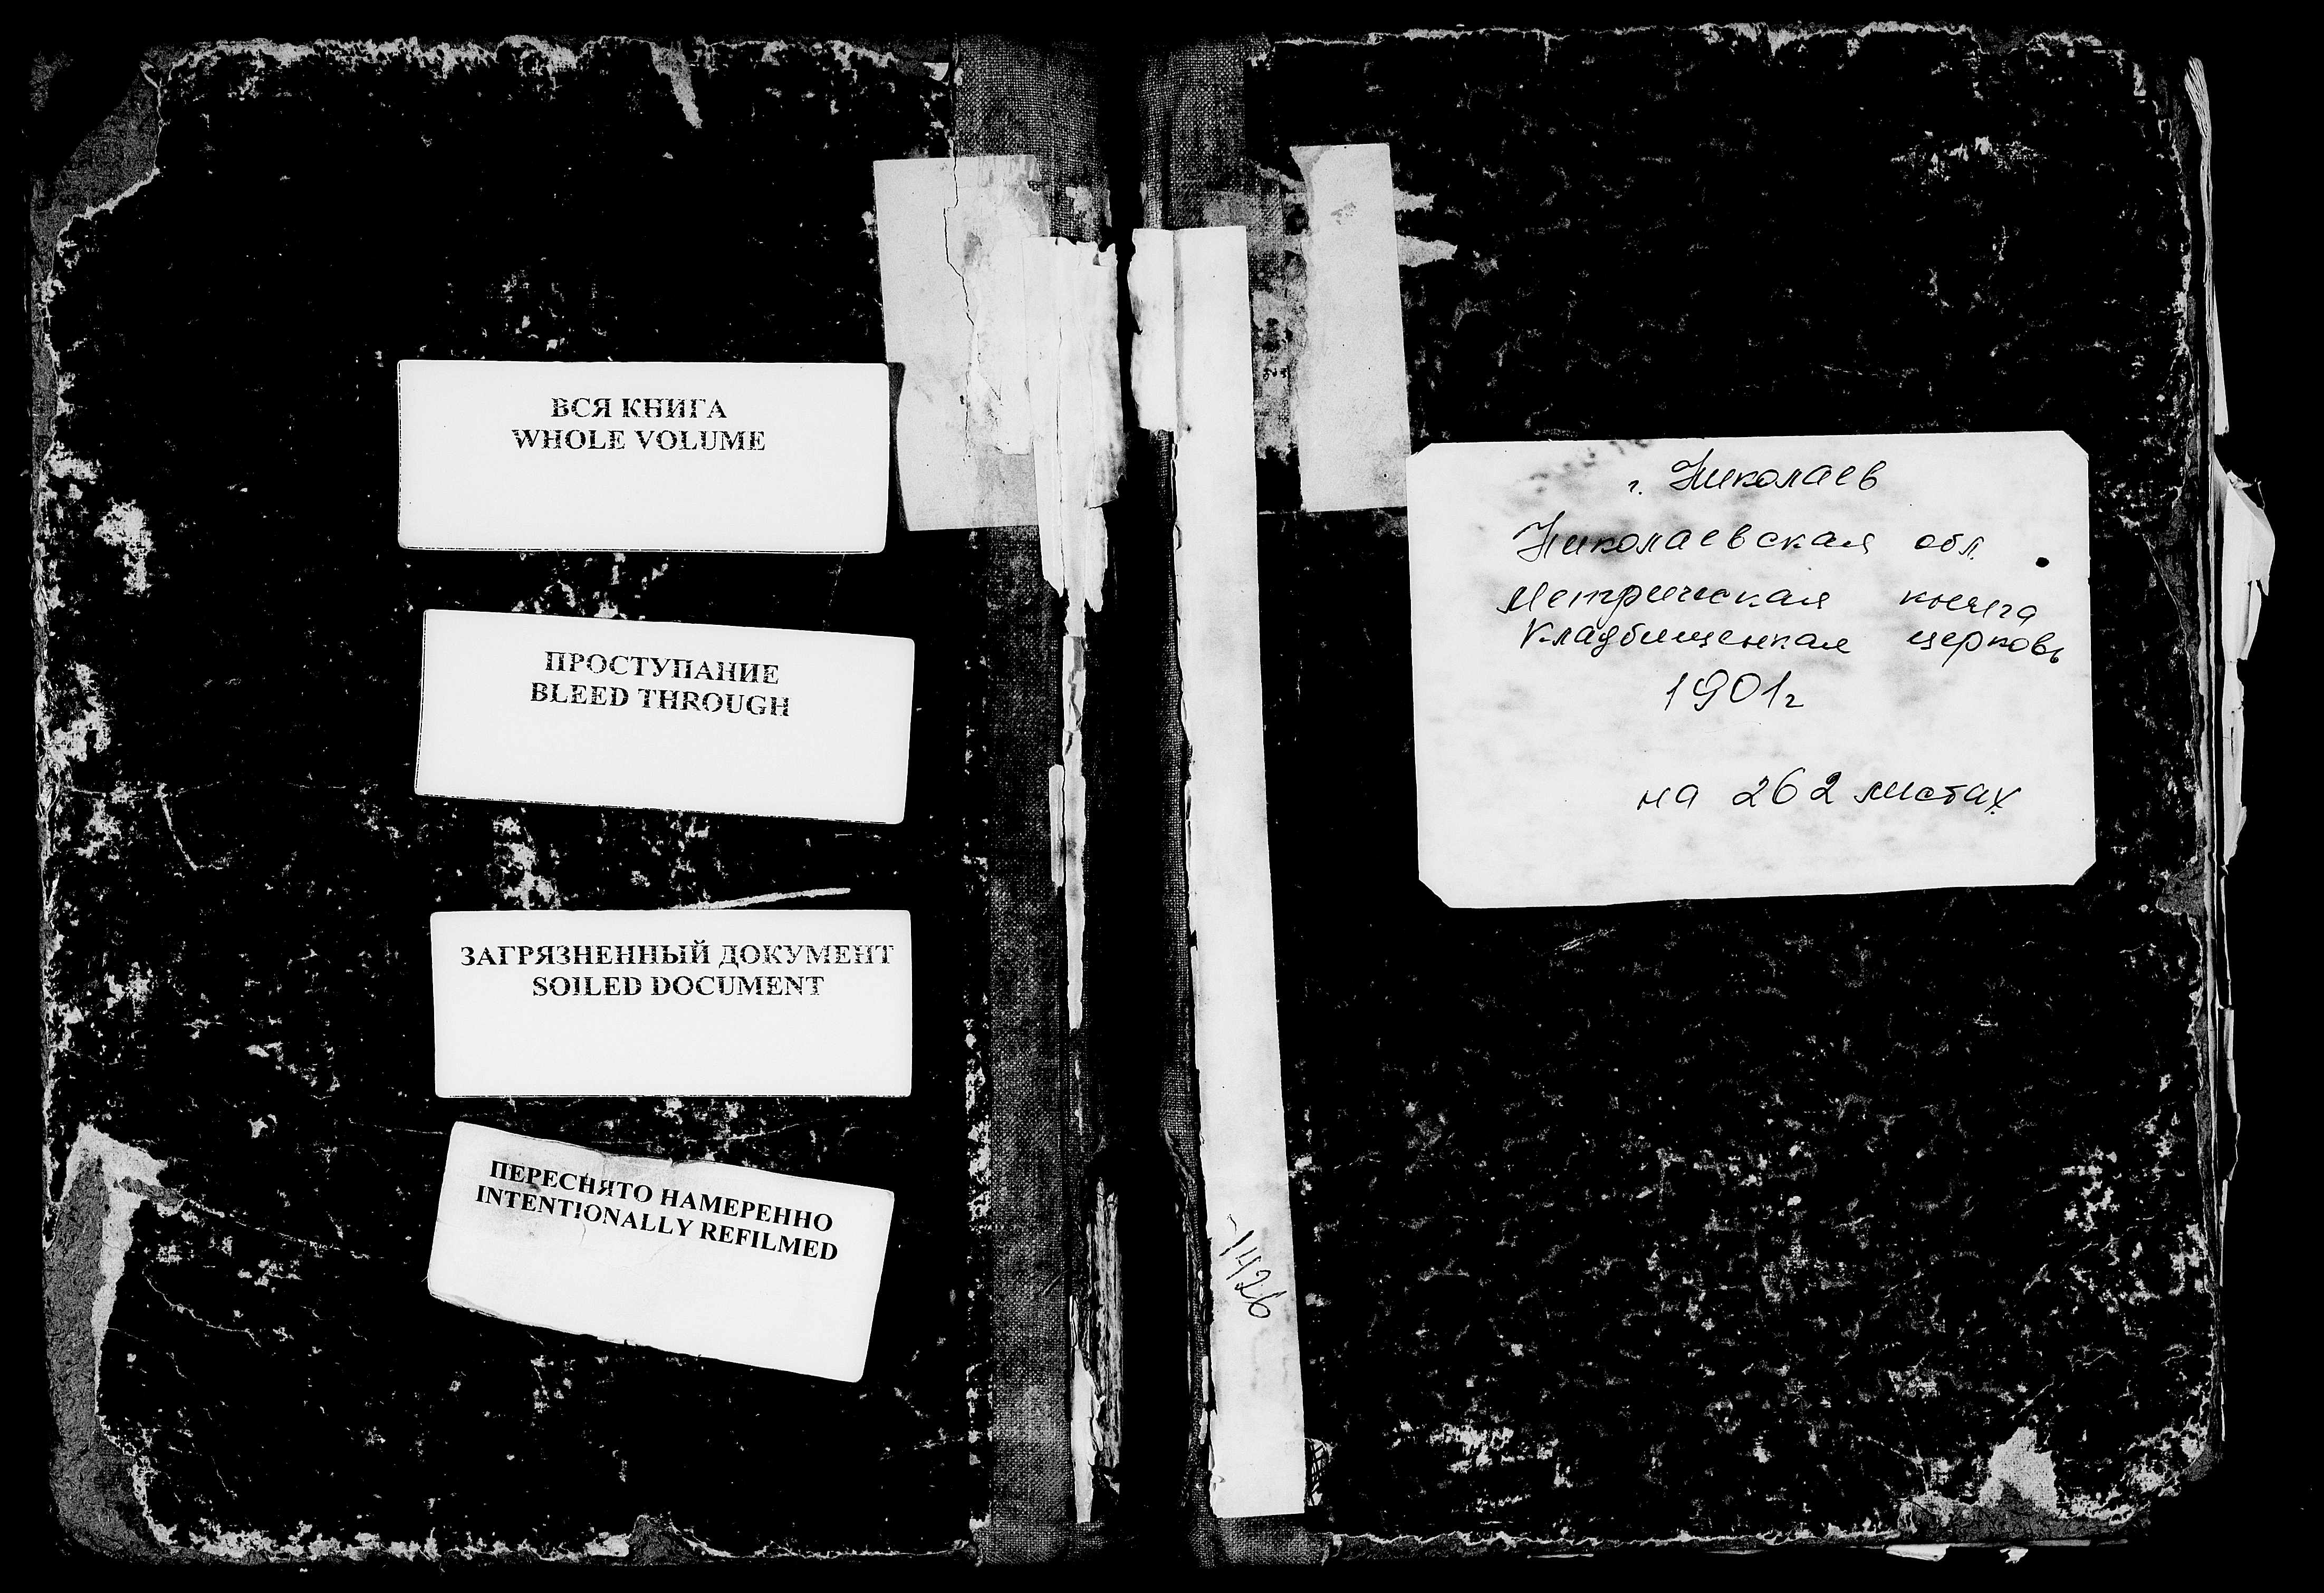 ВСЯ КНИГА
WHOLE VOLUME
ПРОСТУПАНИЕ
BLEED THROUGH
ЗАГРЯЗНЕННЫЙ ДОКУМЕНТ
SOILED DOCUMENT
ПЕРЕСНЯТО НАМЕРЕННО
INTENTIONALLY REFILMED
-1426
г. Николаев
Николаевская обл.
Метрическая книга
Кладбищенкая церковь
1901г
на 262 листах